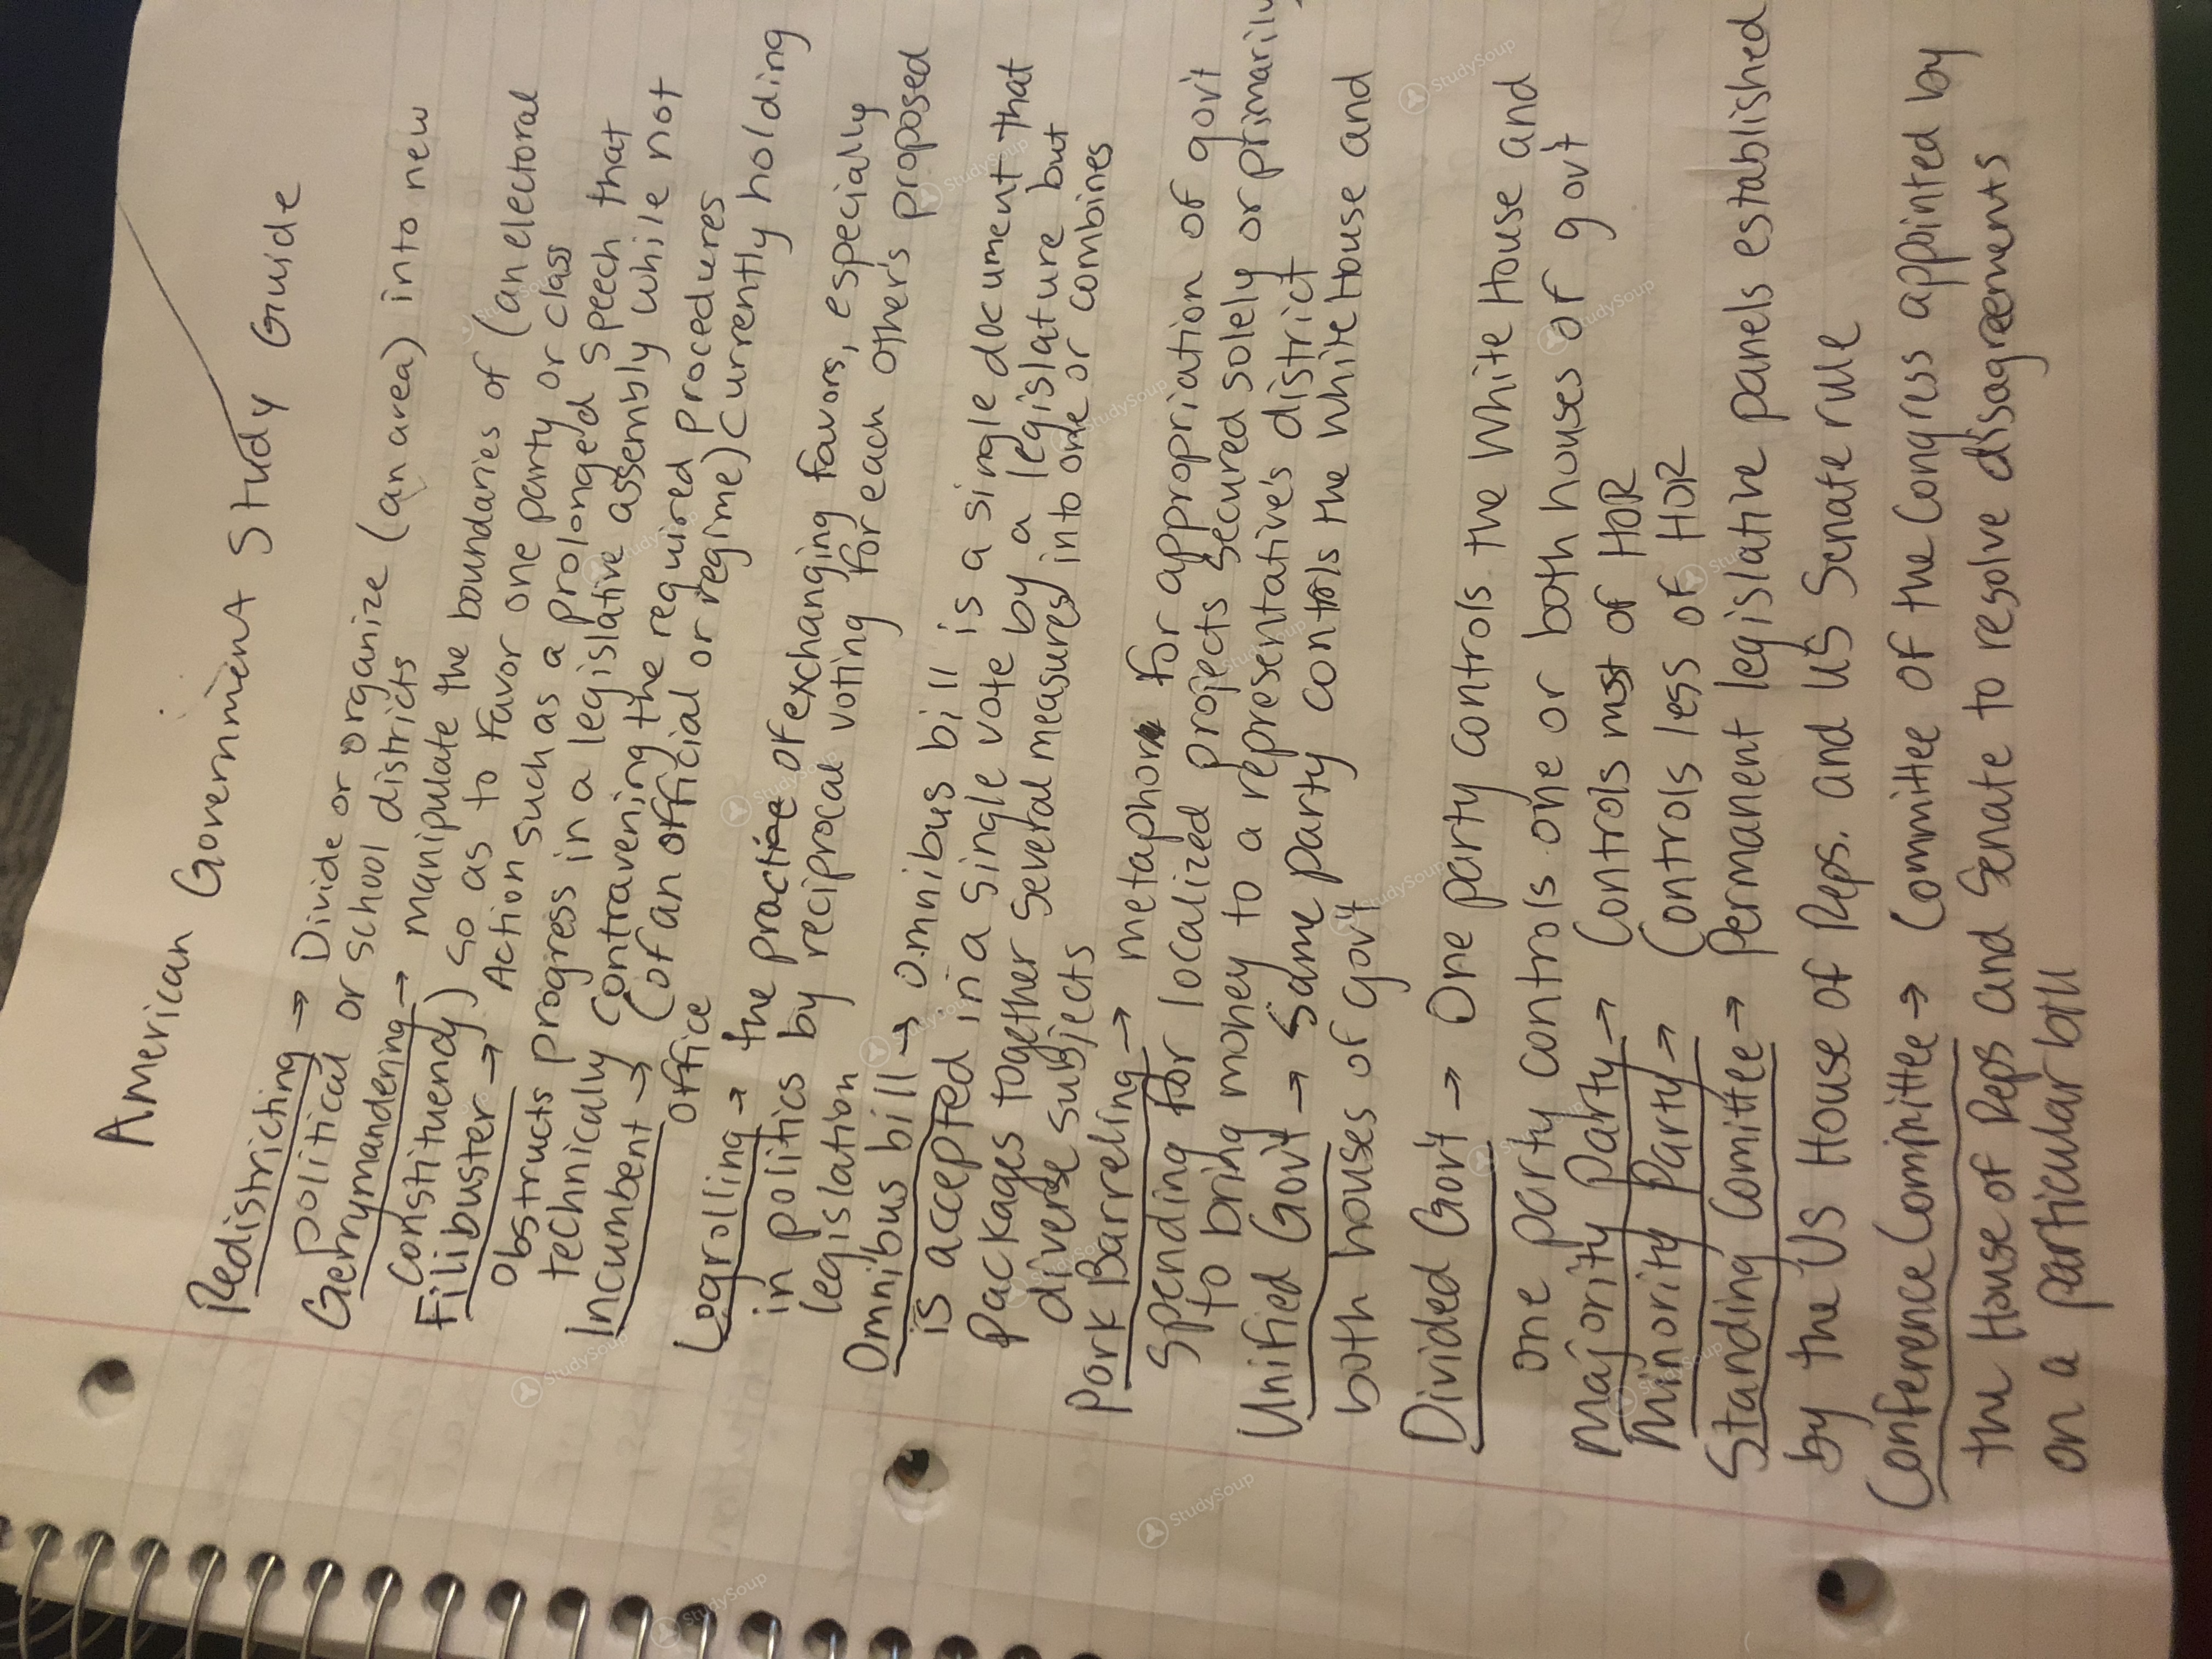 American Government Study Guide
Redistricting → Divide or organize (an area) into new
political or school districts
Gerrymandering → manipulate the boundaries of (an electoral
constituency) so as to favor one party or class
Filibuster → Action such as a prolonged speech that
obstructs progress in a legislative assembly while not
technically contravening the required procedures
Incumbent → (of an official or regime) currently holding
office
Logrolling → the practice of exchanging favors, especially
in politics by reciprocal voting for each other's proposed
legislation
Omnibus bill → omnibus bill is a single document that
is accepted in a single vote by a legislature but
packages together several measures into one or combines
diverse subjects
Pork Barreling → metaphor for appropriation of gov't
spending for localized projects secured solely or primarily
to bring money to a representative's district
Unified Gov't → Same party controls the white House and
both houses of gov't
Divided Gov't → One party controls the White House and
one party controls one or both houses of gov't
Majority Party → Controls most of HOR
Minority Party → Controls less of HOR
Standing Committee → Permanent legislative panels established
by the US House of Reps. and US Senate rule
Conference Committee → Committee of the Congress appointed by
the House of Reps and Senate to resolve disagreements
on a particular bill
StudySoup